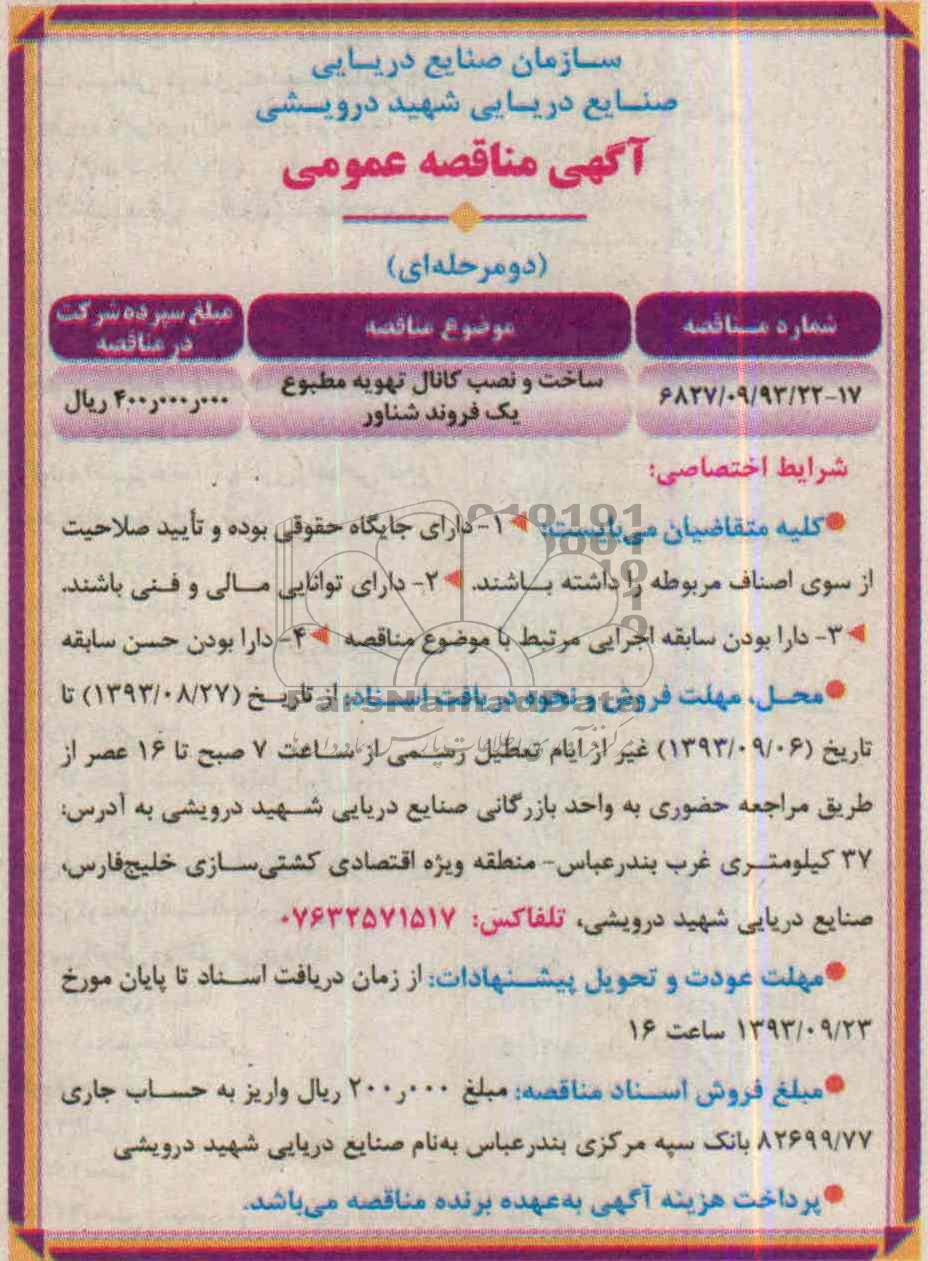 سازمان صنایع دریایی
صنایع دریایی شهید درویشی
آگهی مناقصه عمومی
(دومرحله‌ای)
شماره مناقصه
موضوع مناقصه
مبلغ سپرده شرکت
در مناقصه
۶۸۲۷/۰۹/۹۳/۲۲-۱۷
ساخت و نصب کانال تهویه مطبوع
یک فروند شناور
۴۰۰ر۰۰۰ر۰۰۰ ریال
شرایط اختصاصی:
کلیه متقاضیان می‌بایست: ۱- دارای جایگاه حقوقی بوده و تأیید صلاحیت
از سوی اصناف مربوطه را داشته باشند. ۲- دارای توانایی مالی و فنی باشند.
۳- دارا بودن سابقه اجرایی مرتبط با موضوع مناقصه ۴- دارا بودن حسن سابقه
محل، مهلت فروش و نحوه دریافت اسناد: از تاریخ (۱۳۹۳/۰۸/۲۷) تا
تاریخ (۱۳۹۳/۰۹/۰۶) غیر از ایام تعطیل رسمی از ساعت ۷ صبح تا ۱۶ عصر از
طریق مراجعه حضوری به واحد بازرگانی صنایع دریایی شهید درویشی به آدرس:
۳۷ کیلومتری غرب بندرعباس- منطقه ویژه اقتصادی کشتی‌سازی خلیج‌فارس،
صنایع دریایی شهید درویشی، تلفاکس: ۰۷۶۳۲۵۷۱۵۱۷
مهلت عودت و تحویل پیشنهادات: از زمان دریافت اسناد تا پایان مورخ
۱۳۹۳/۰۹/۲۳ ساعت ۱۶
مبلغ فروش اسناد مناقصه: مبلغ ۲۰۰ر۰۰۰ ریال واریز به حساب جاری
۸۲۶۹۹/۷۷ بانک سپه مرکزی بندرعباس به‌نام صنایع دریایی شهید درویشی
پرداخت هزینه آگهی به‌عهده برنده مناقصه می‌باشد.
ParsNamadData